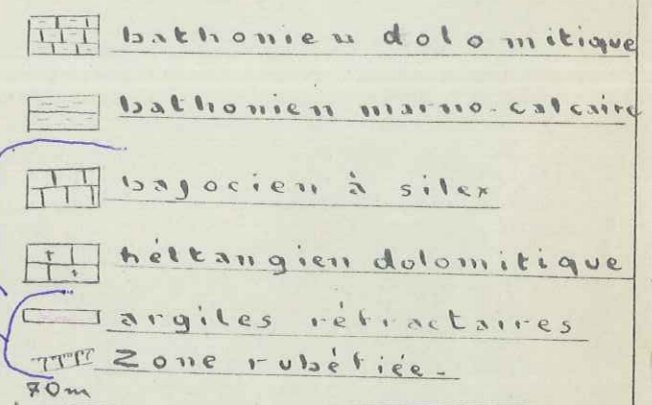 bathonien dolomitique
bathonien marno-calcaire
bajocien à silex
héttangien dolomitique
argiles réfractaires
Zone rubéfiée.
70m